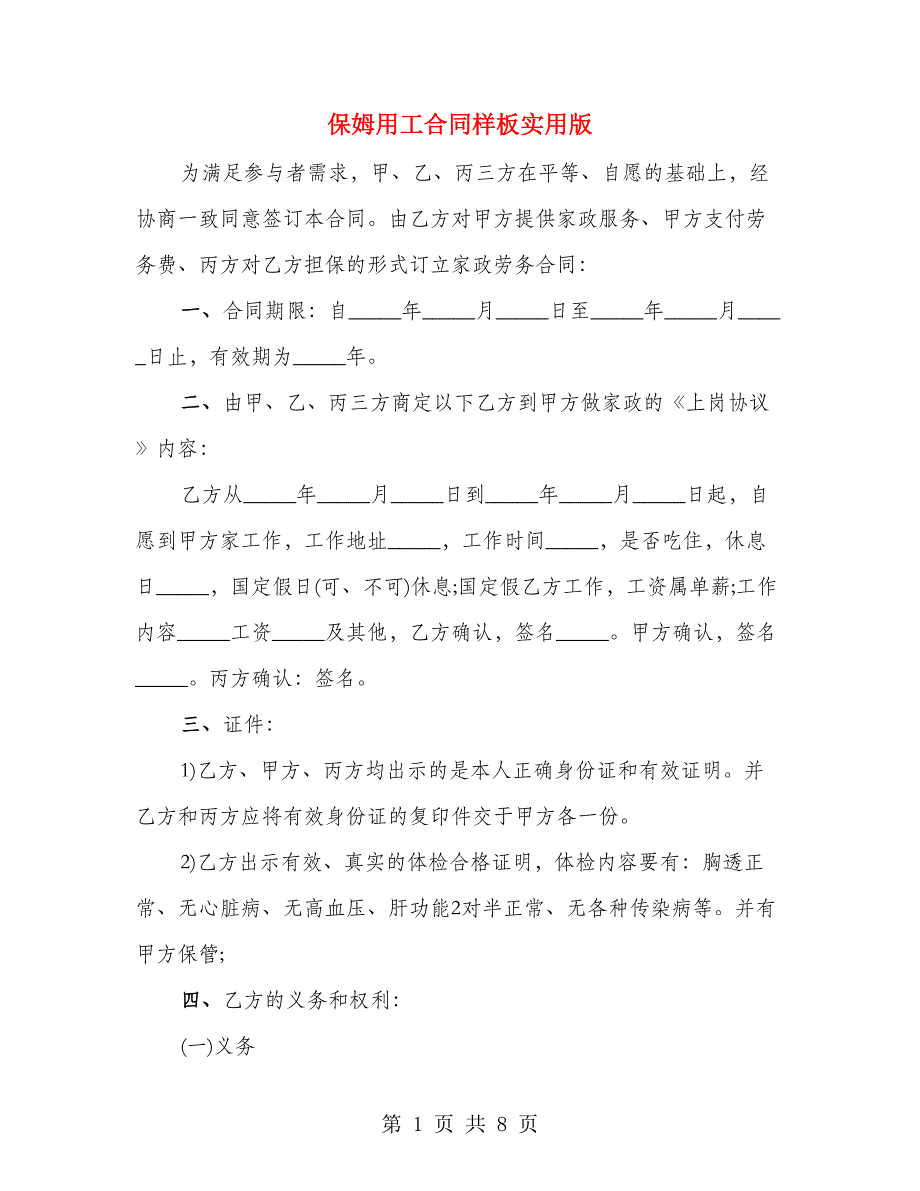 保姆用工合同样板实用版
为满足参与者需求，甲、乙、丙三方在平等、自愿的基础上，经
协商一致同意签订本合同。由乙方对甲方提供家政服务、甲方支付劳
务费、丙方对乙方担保的形式订立家政劳务合同：
一、合同期限：自_____年_____月_____日至_____年_____月____
_日止，有效期为_____年。
二、由甲、乙、丙三方商定以下乙方到甲方做家政的《上岗协议
》内容：
乙方从_____年_____月_____日到_____年_____月_____日起，自
愿到甲方家工作，工作地址_____，工作时间_____，是否吃住，休息
日_____，国定假日(可、不可)休息;国定假乙方工作，工资属单薪;工作
内容_____工资_____及其他，乙方确认，签名_____。甲方确认，签名
_____。丙方确认：签名。
三、证件：
1)乙方、甲方、丙方均出示的是本人正确身份证和有效证明。并
乙方和丙方应将有效身份证的复印件交于甲方各一份。
2)乙方出示有效、真实的体检合格证明，体检内容要有：胸透正
常、无心脏病、无高血压、肝功能2对半正常、无各种传染病等。并有
甲方保管;
四、乙方的义务和权利：
(一)义务
第 1 页 共 8 页